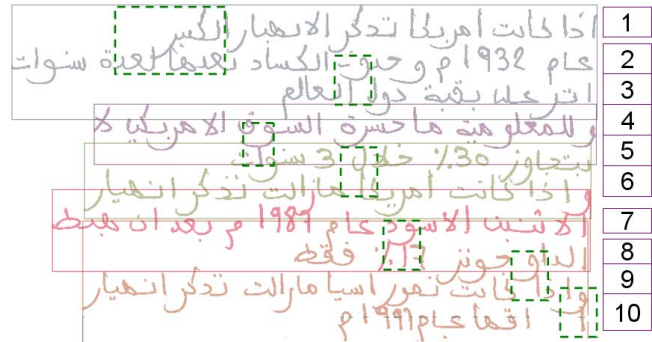 اذا كانت امريكا تذكر الانهيار الكبير
عام 1932 م وحدوث الكساد بعدها لعدة سنوات
اثر على بقية دول العالم
و للمعلومية ما خسرة السوق الامريكي لا
يتجاوز 30٪ خلال 3 سنوات
و اذا كانت امريكا مازالت تذكر انهيار
الاثنين الاسود عام 1987 م بعد ان هبط
الداو جونز ٪ فقط
واذا كانت نمور اسيا مازالت تذكر انهيار
اقما عام 1997 م
1
2
3
4
5
6
7
8
9
10